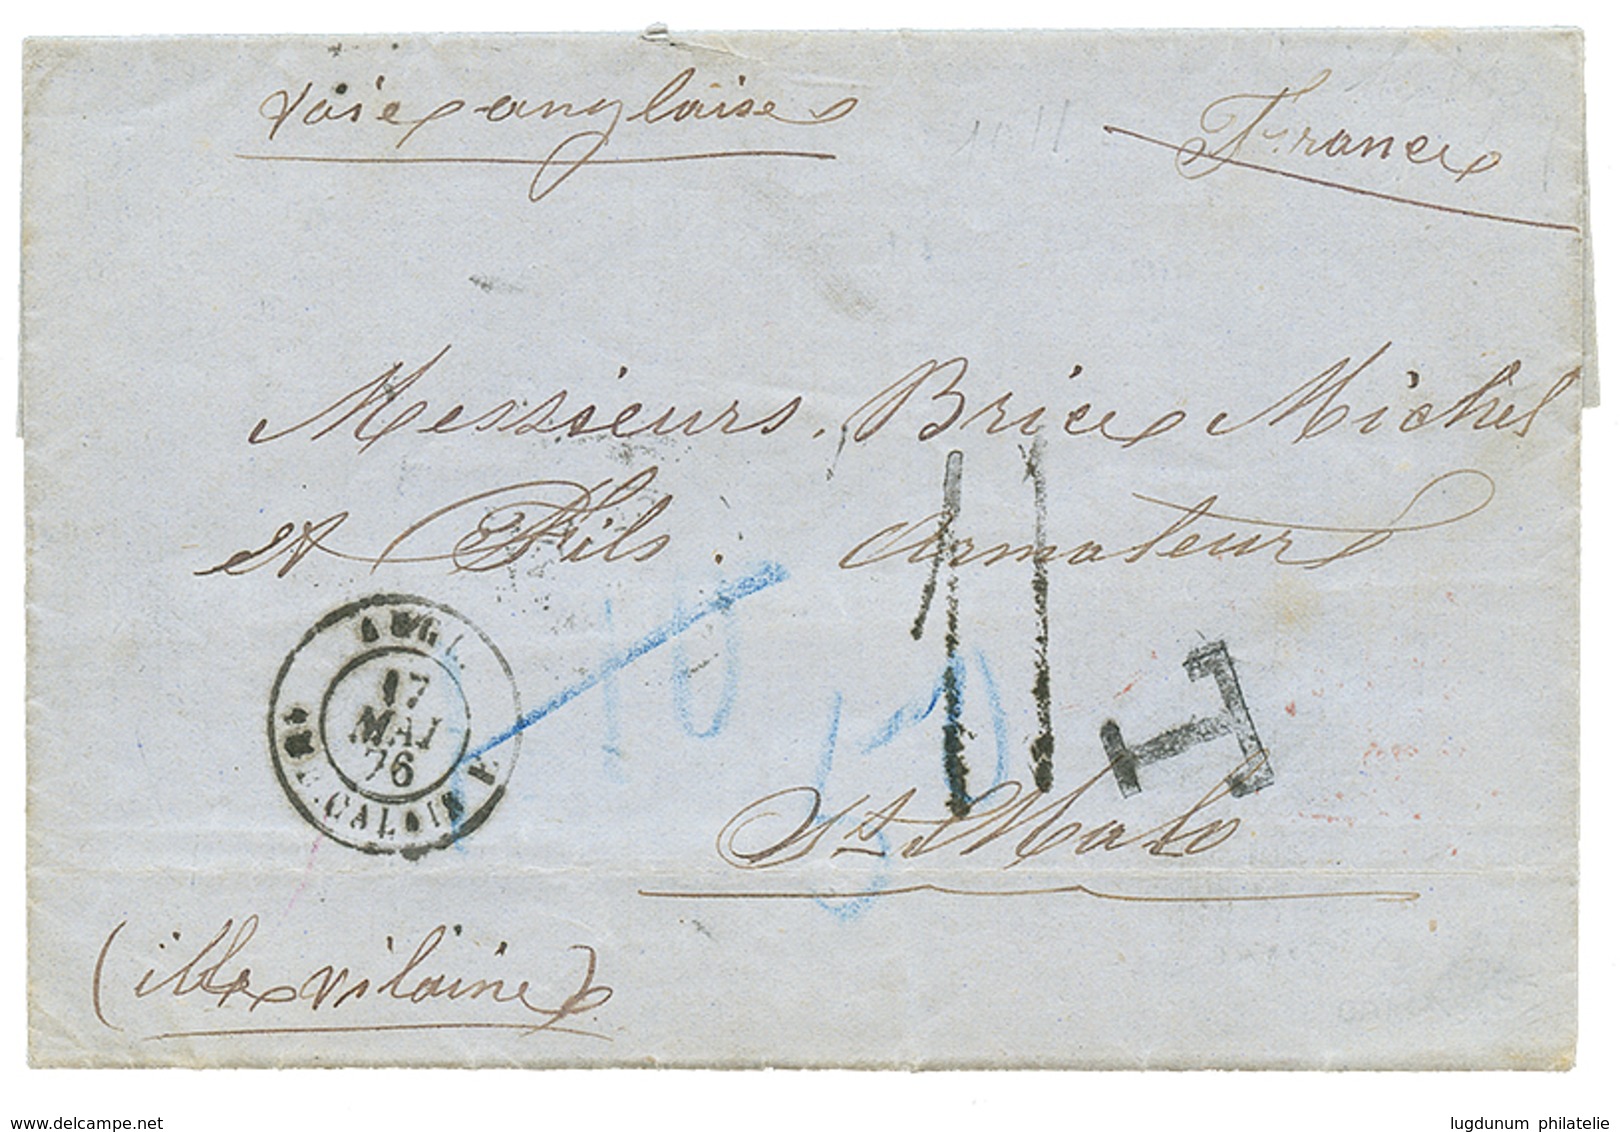 voie anglaise
France
Messieurs Brice Michel
et Fils. Armateurs
10
11
T
ANGL.
17
MAI
76
CALAIS
St Malo
(ille vilaine)
delcampe.net
lugdunum philatelie